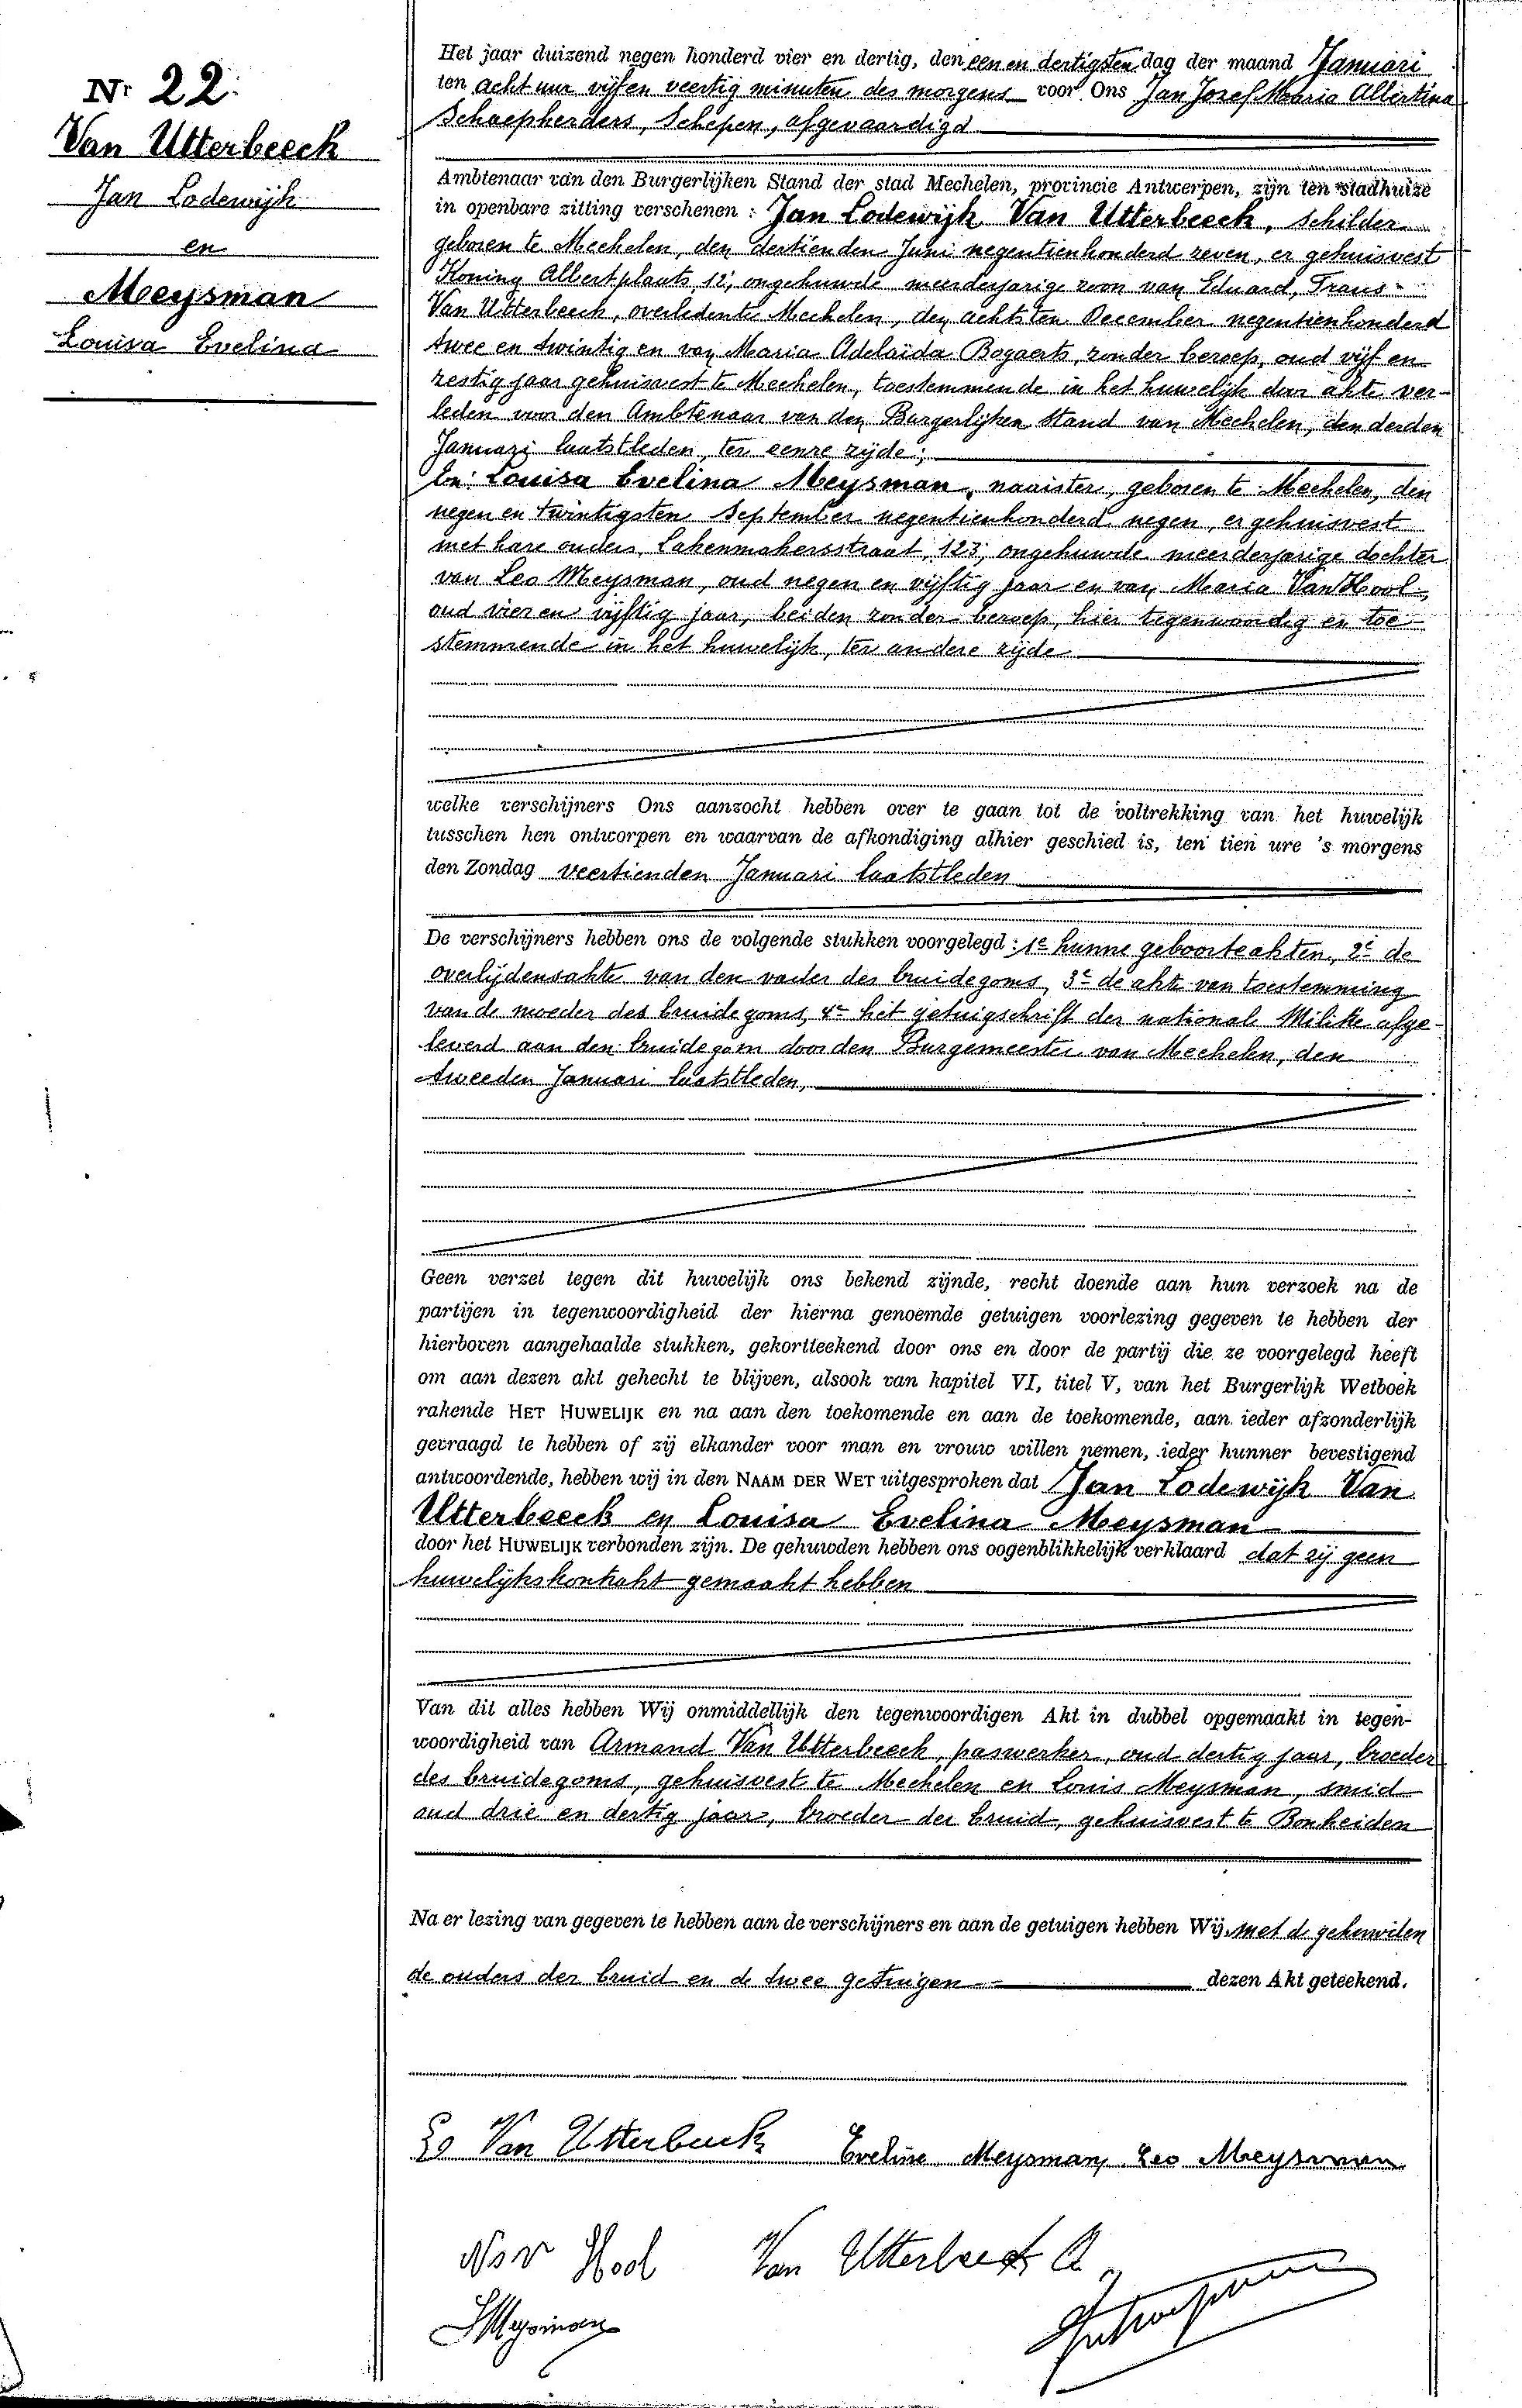 Nr 22.
Van Utterbeeck
Jan Lodewijk
en
Meysman
Louisa Evelina
Het jaar duizend negen honderd vier en dertig, den een en dertigsten dag der maand Januari
ten acht uur vijf en veertig minuten des morgens voor Ons Jan Jozef Maria Albertina
Schaepherders, Schepen, afgevaardigd
Ambtenaar van den Burgerlijken Stand der stad Mechelen, provincie Antwerpen, zijn ten stadhuize
in openbare zitting verschenen : Jan Lodewijk Van Utterbeeck, schilder
geboren te Mechelen, den dertienden Juni negentienhonderd zeven, er gehuisvest
Koning Albertplaats, 12, ongehuwde meerderjarige zoon van Eduard, Frans
Van Utterbeeck, overleden te Mechelen, den achtsten December negentienhonderd
twee en twintig en van Maria Adelaïda Bogaerts, zonder beroep, oud vijf en
zestig jaar gehuisvest te Mechelen, toestemmende in het huwelijk door akte ver-
leden voor den Ambtenaar van den Burgerlijken Stand van Mechelen, den derden
Januari laatstleden, ter eenre zijde ;
En: Louisa Evelina Meysman, naaister, geboren te Mechelen, den
negen en twintigsten September negentienhonderd negen, er gehuisvest
met hare ouders, Lakenmakersstraat, 123, ongehuwde meerderjarige dochter
van Leo Meysman, oud negen en vijftig jaar en van Maria Van Hool,
oud vier en vijftig jaar, beiden zonder beroep, hier tegenwoordig en toe-
stemmende in het huwelijk, ter andere zijde
welke verschijners Ons aanzocht hebben over te gaan tot de voltrekking van het huwelijk
tusschen hen ontworpen en waarvan de afkondiging alhier geschied is, ten tien ure 's morgens
den Zondag veertienden Januari laatstleden
De verschijners hebben ons de volgende stukken voorgelegd : 1e hunne geboorteakten, 2e de
overlijdensakte van den vader des bruidegoms, 3e de akte van toestemming
van de moeder des bruidegoms, 4e het getuigschrift der nationale Militie afge-
leverd aan den bruidegom door den Burgemeester van Mechelen, den
tweeden Januari laatstleden,
Geen verzet tegen dit huwelijk ons bekend zijnde, recht doende aan hun verzoek na de
partijen in tegenwoordigheid der hierna genoemde getuigen voorlezing gegeven te hebben der
hierboven aangehaalde stukken, gekortteekend door ons en door de partij die ze voorgelegd heeft
om aan dezen akt gehecht te blijven, alsook van kapitel VI, titel V, van het Burgerlijk Wetboek
rakende HET HUWELIJK en na aan den toekomende en aan de toekomende, aan ieder afzonderlijk
gevraagd te hebben of zij elkander voor man en vrouw willen nemen, ieder hunner bevestigend
antwoordende, hebben wij in den NAAM DER WET uitgesproken dat Jan Lodewijk Van
Utterbeeck en Louisa Evelina Meysman
door het HUWELIJK verbonden zijn. De gehuwden hebben ons oogenblikkelijk verklaard dat zij geen
huwelijkskontrakt gemaakt hebben
Van dit alles hebben Wij onmiddellijk den tegenwoordigen Akt in dubbel opgemaakt in tegen-
woordigheid van Armand Van Utterbeeck, paswerker, oud dertig jaar, broeder
des bruidegoms, gehuisvest te Mechelen en Louis Meysman, smid
oud drie en dertig jaar, broeder der bruid, gehuisvest te Bonheiden
Na er lezing van gegeven te hebben aan de verschijners en aan de getuigen hebben Wij, met de gehuwden
de ouders der bruid en de twee getuigen dezen Akt geteekend.
Van Utterbeeck Eveline Meysman, Leo Meysman
Hool Van Utterbeeck A
LMeysman